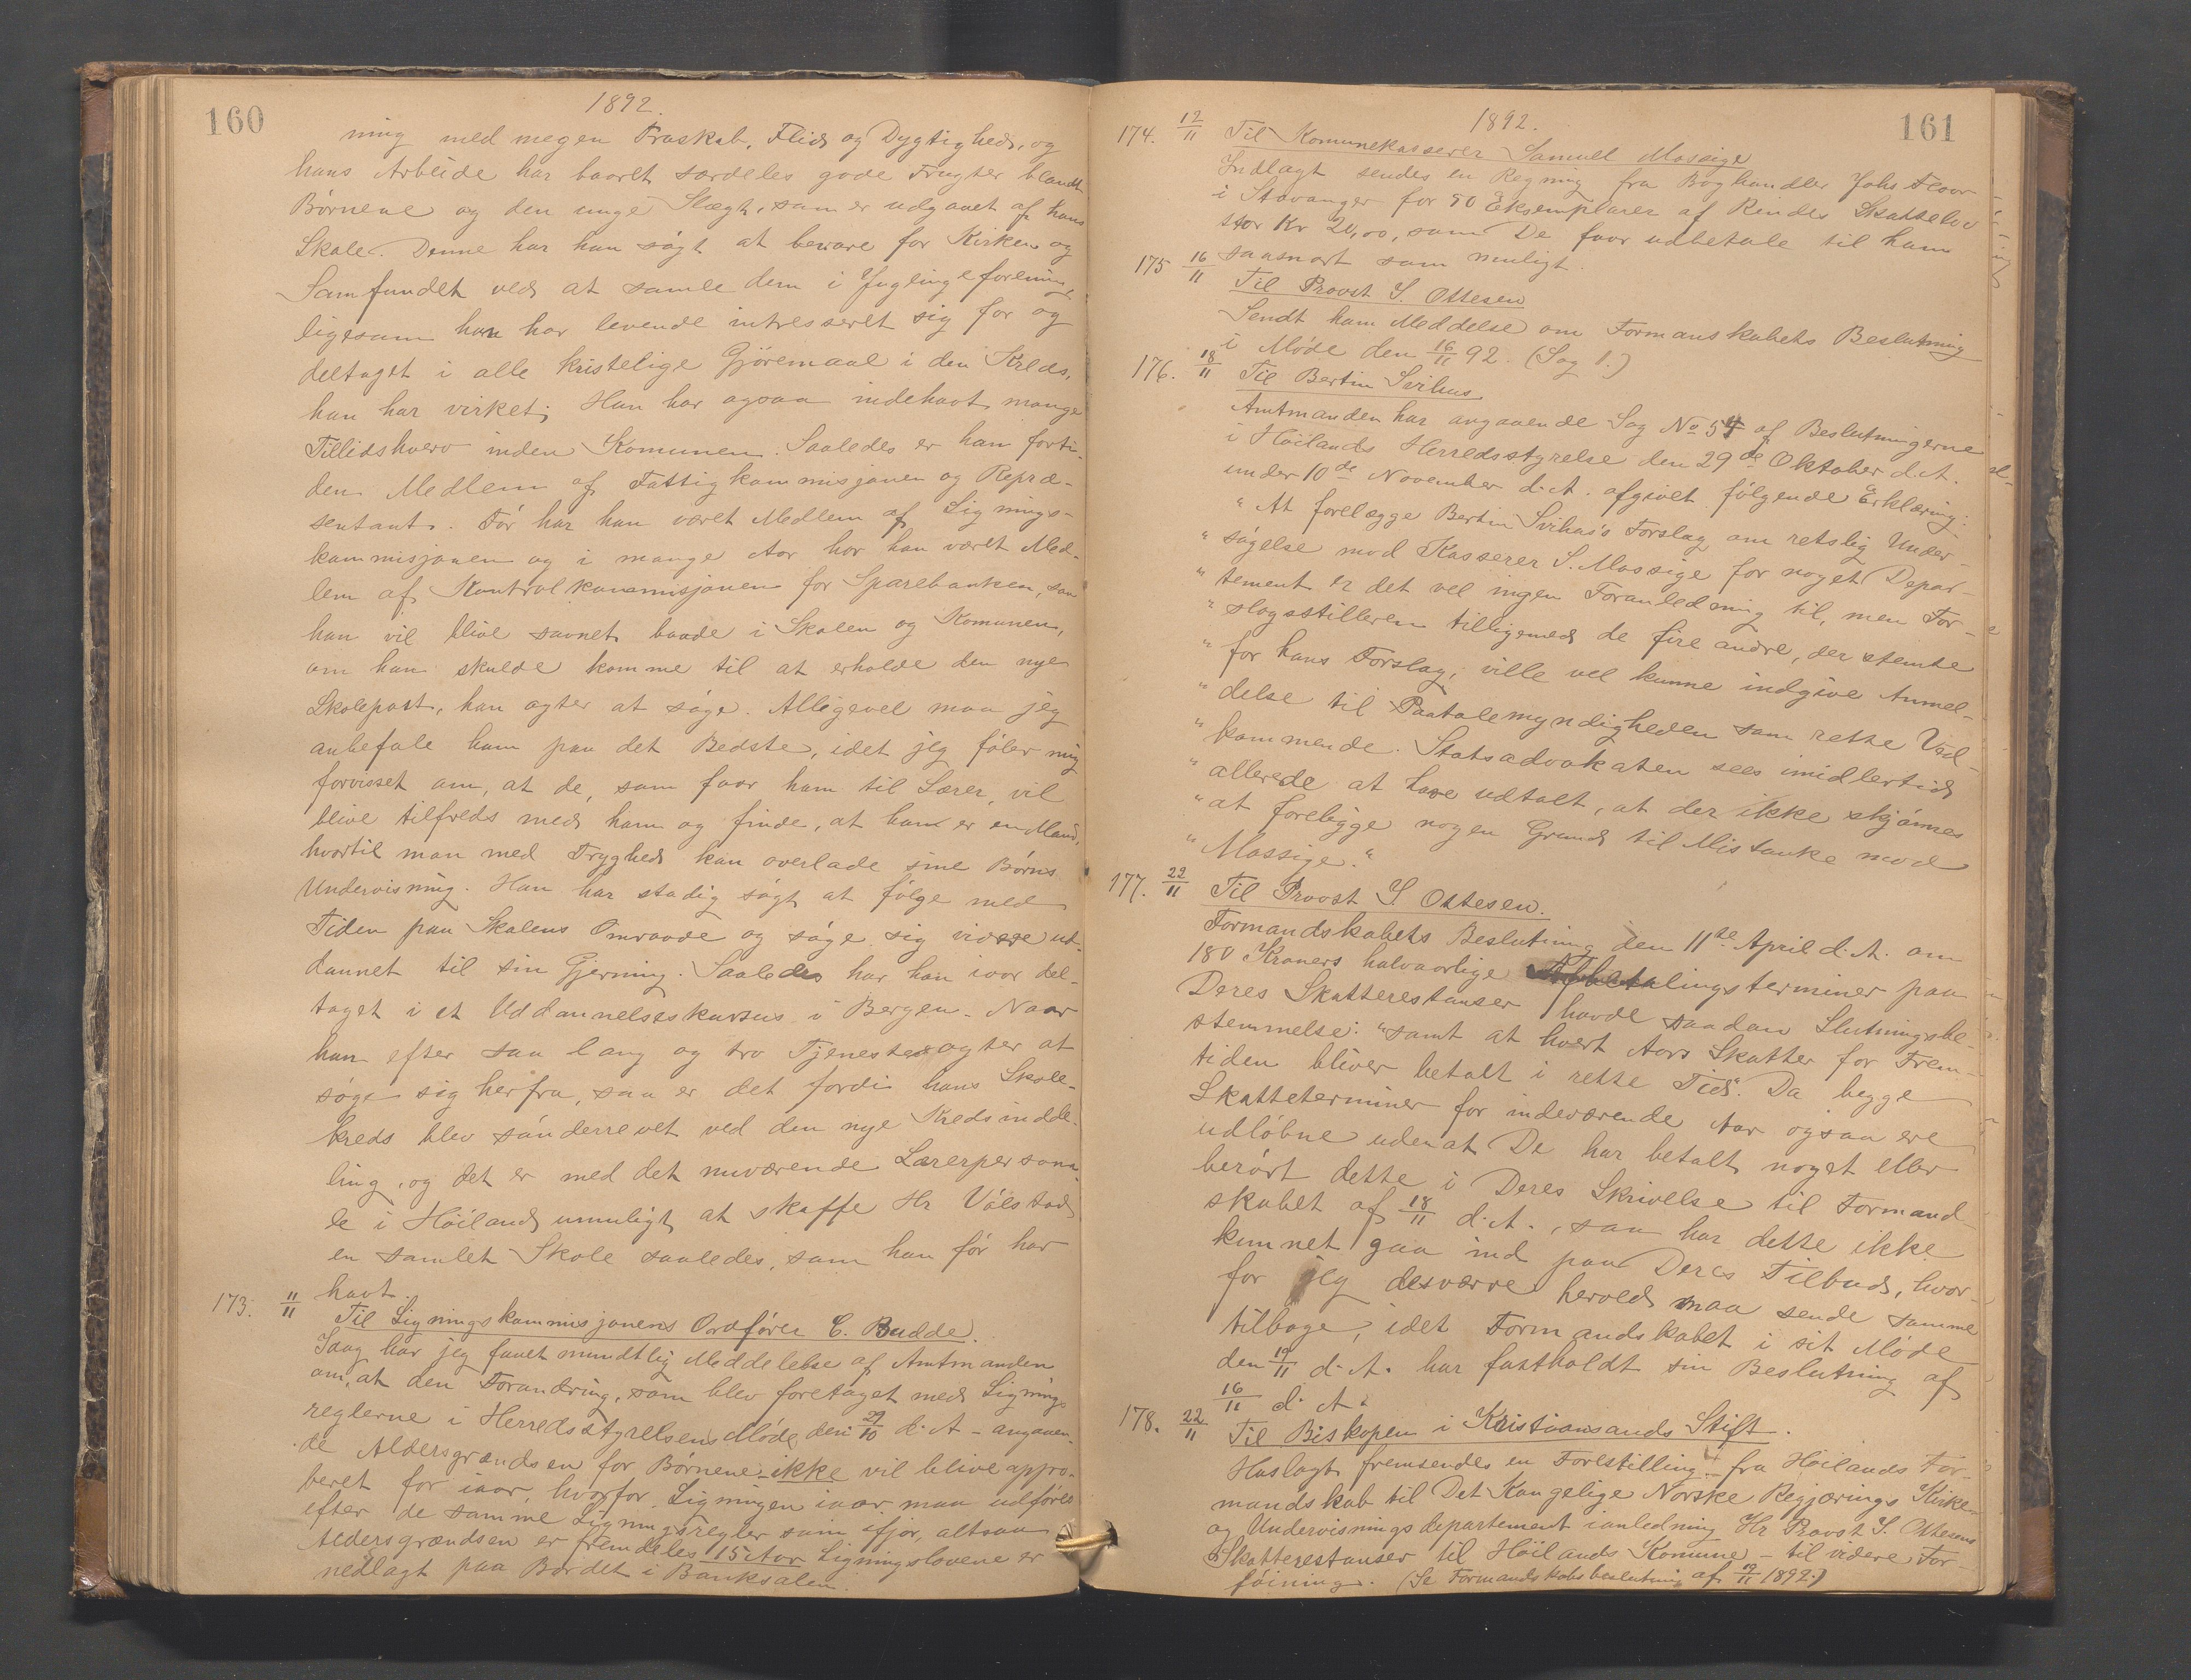 160
1892.
ning med megen Troskab, Flid og Dygtighed, og
hans Arbeide har baaret særdeles gode Frugter blandt
Børnene og den unge Slægt, som er udgaaet af hans
Skole. Denne har han søgt at bevare for Kirken og
Samfundet ved at samle dem i Ynglingeforening,
ligesom han har levende intresseret sig for og
deltaget i alle kristelige Gjøremaal i den Kreds,
han har virket; Han har ogsaa indehavt mange
Tillidshverv inden Komunen. Saaledes er han forti-
den Medlem af Fattigkommisjonen og Repræ-
sentant. Før har han været Medlem af Lignings-
kommisjonen og i mange Aar har han været Med-
lem af Kontrolkommisjonen for Sparebanken, saa
han vil blive savnet baade i Skolen og Komunen,
om han skulde komme til at erholde den nye
Skolepost, han agter at søge. Alligevel maa jeg
anbefale ham paa det Bedste, idet jeg føler mig
forvisset om, at de, som faar ham til Lærer, vil
blive tilfreds med ham og finde, at han er en Mand,
hvortil man med Tryghed kan overlade sine Børns
Undervisning. Han har stadig søgt at følge med
Tiden paa Skolens Omraade og søge sig videre ud-
dannet til sin Gjerning. Saaledes har han iaar del-
taget i et Uddannelseskursus i Bergen. Naar
han efter saa lang og tro Tjeneste agter at
søge sig herfra, saa er det fordi hans Skole-
kreds blev sønderrevet ved den nye Kredsindde-
ling, og det er med det nuværende Lærerpersona-
le i Høiland umuligt at skaffe Hr Vølstad
en samlet Skole saaledes, som han før har
havt.
173. 11/11 Til Ligningskommisjonens Ordfører C. Budde.
Idag har jeg faaet mundtlig Meddelelse af Amtmanden
om, at den Forandring, som blev foretaget med Lignings
reglerne i Herredsstyrelsens Møde den 29/10 d. A. – angaaen-
de Aldersgrændsen for Børnene – ikke vil blive appro-
beret for iaar, hvorfor Ligningen iaar maa udføres
efter de samme Ligningsregler som ifjor, altsaa
Aldersgrændsen er fremdeles 15 Aar. Ligningslovene er
nedlagt paa Bordet i Banksalen.
161
1892.
174. 12/11 Til Komunekasserer Samuel Mossige
Indlagt sendes en Regning fra Boghandler Johs Floor
i Stavanger for 50 Eksemplarer af Rindes Skattelov
stor Kr 20,00, som De faar udbetale til ham
saasnart som muligt.
175 16/11 Til Provst S. Ottesen
Sendt ham Meddelse om Formanskabets Beslutning
i Møde den 16/11 92. (Sag 1.)
176. 18/11 Til Bertin Svihus
Amtmanden har angaaende Sag No 54 af Beslutningerne
i Høilands Herredsstyrelse den 29de Oktober d. A.
under 10de November d. A. afgivet følgende Erklæring:
" At forelægge Bertin Svihus's Forslag om retslig Under-
" søgelse mod Kasserer S. Mossige for noget Depar-
" tement er det vel ingen Foranledning til, men For-
" slagsstilleren tilligemed de fire andre, der stemte
" for hans Forslag, ville vel kunne indgive Anmel-
" delse til Paatalemyndigheden som rette Ved-
" kommende. Statsadvokaten sees imidlertid
" allerede at have udtalt, at der ikke skjønnes
" at foreligge nogen Grund til Mistanke mod
" Mossige."
177. 22/11 Til Provst S. Ottesen.
Formandskabets Beslutning den 11te April d. A. om
180 Kroners halvaarlige Afbetalingsterminer paa
Deres Skatterestanser havde saadan Slutningsbe-
stemmelse: "samt at hvert Aars Skatter for Frem-
tiden bliver betalt i rette Tid". Da begge
Skatteterminer for indeværende Aar ogsaa ere
udløbne uden at De har betalt noget eller
berørt dette i Deres Skrivelse til Formand-
skabet af 18/11 d. A., saa har dette ikke
kunnet gaa ind paa Deres Tilbud, hvor-
for jeg desværre herved maa sende samme
tilbage, idet Formandskabet i sit Møde
den 19/11 d. A. har fastholdt sin Beslutning af
16/11 d. A.
178. 22/11 Til Biskopen i Kristiansands Stift.
Haslagt fremsendes en Forestilling fra Høilands For-
mandskab til Det Kongelige Norske Regjerings Kirke-
og Undervisningsdepartement ianledning Hr Provst S. Ottesens
Skatterestanser til Høilands Komune – til videre For-
føining. (Se Formandskabsbeslutning af 19/11 1892.)